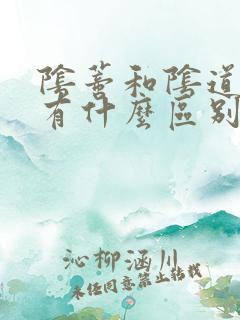 陰蒂和陰道
有什麼區別
沁柳涵川
未经同意禁止转载